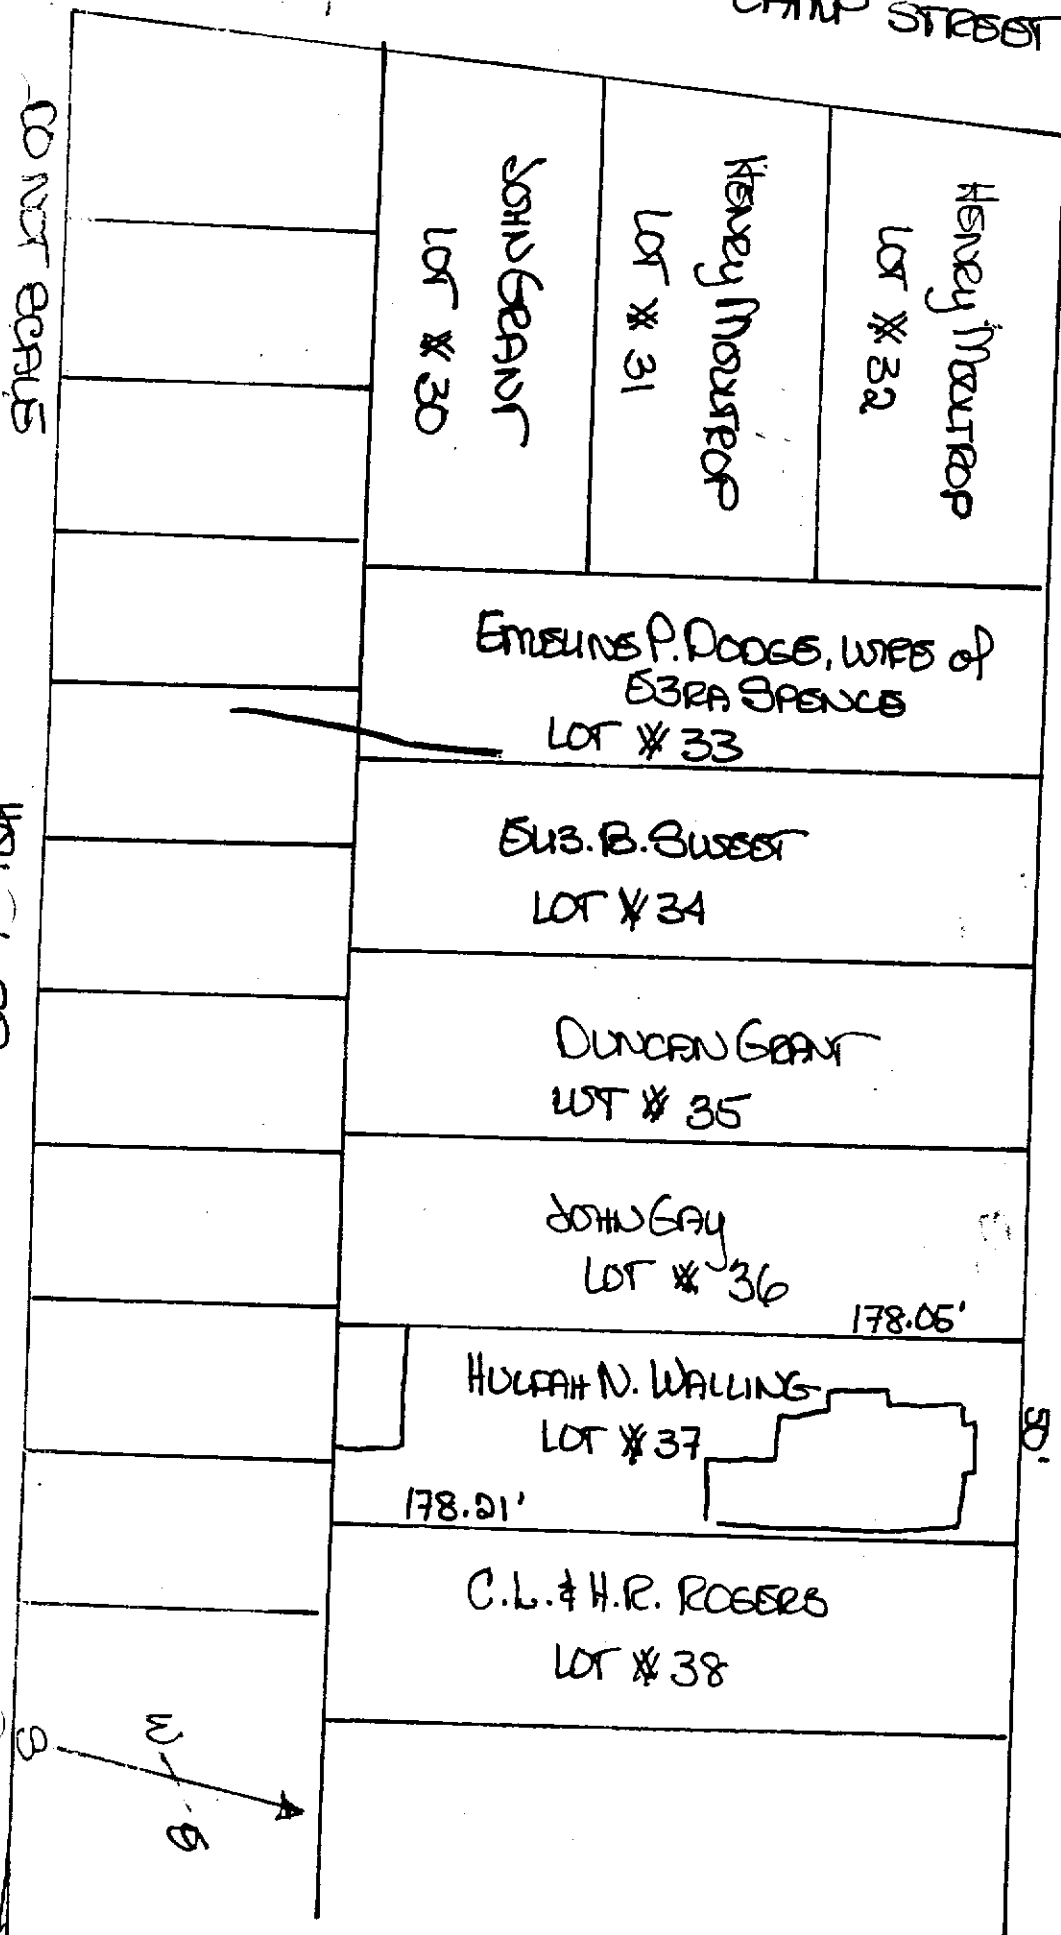 CAMP STREET
DO NOT SCALE
JOHN GRANT
LOT # 30
HENRY MOULTROP
LOT # 31
HENRY MOULTROP
LOT # 32
EMELINE P. DODGE, WIFE OF
EZRA SPENCE
LOT # 33
ELIZ. B. SWEET
LOT # 34
DUNCAN GRANT
LOT # 35
JOHN GAY
LOT # 36
178.05'
HULDAH N. WALLING
LOT # 37
50'
178.21'
C.L. & H.R. ROGERS
LOT # 38
W
E
S